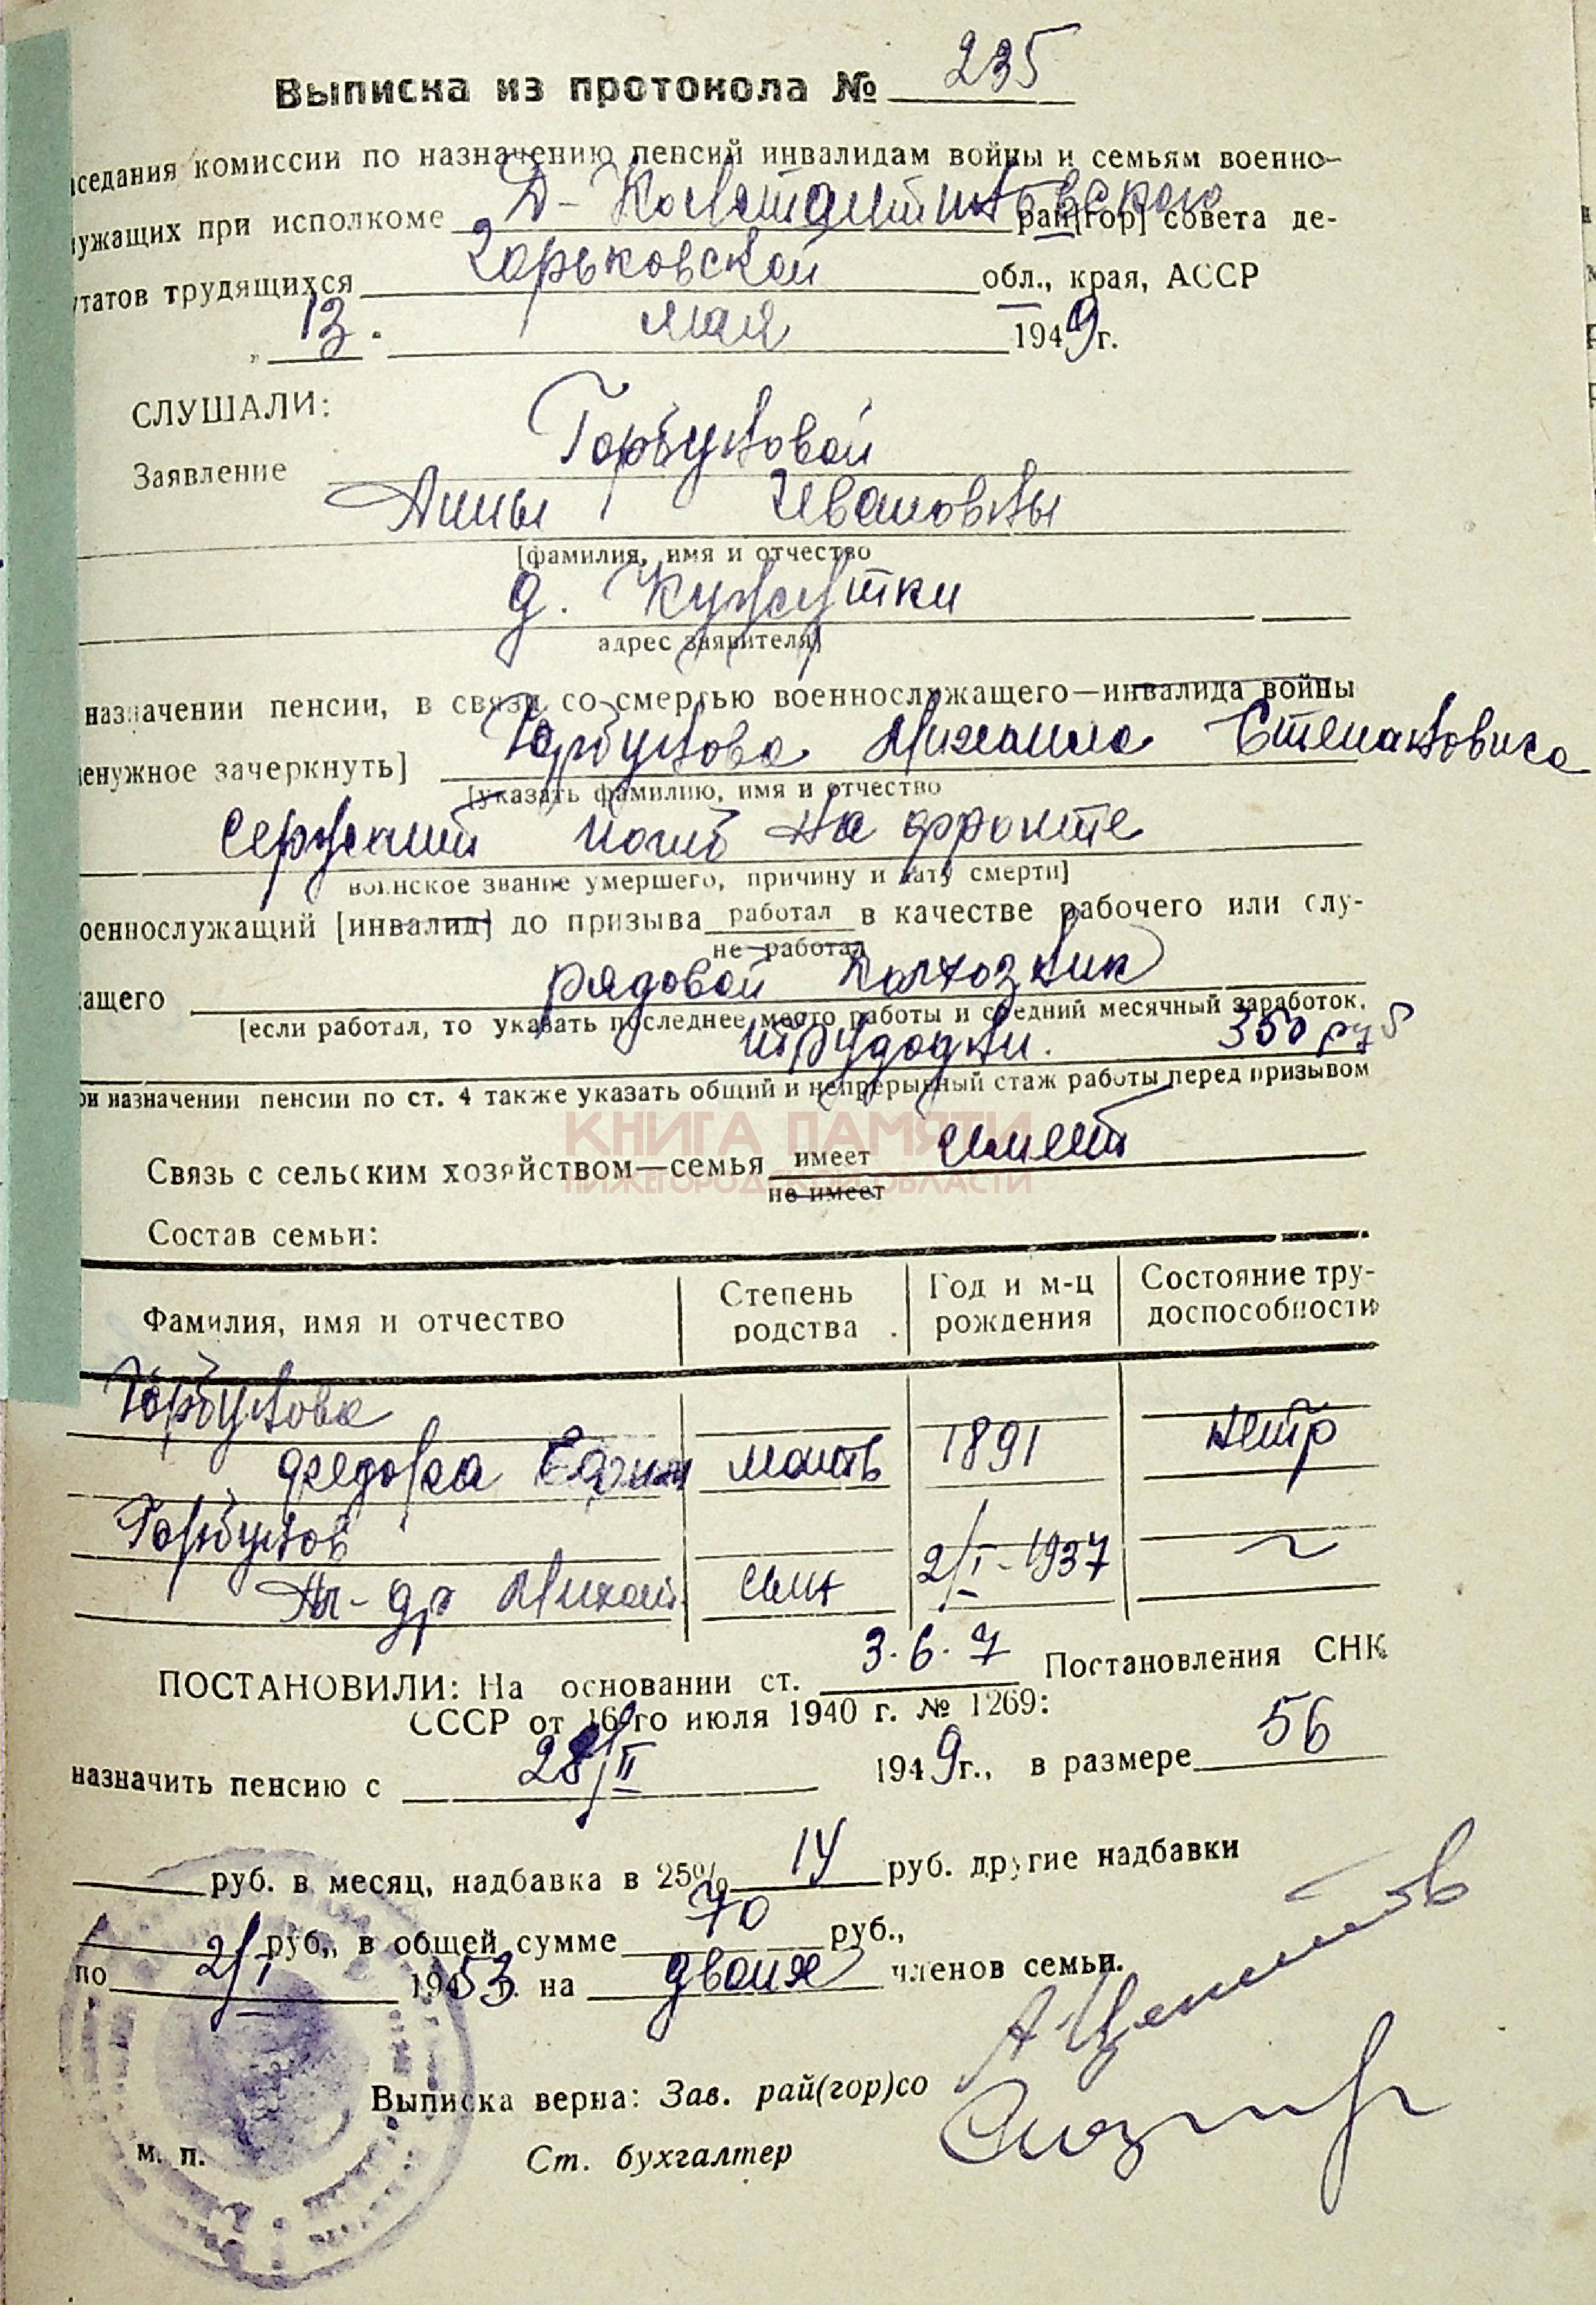 Выписка из протокола № 235
аседания комиссии по назначению пенсий инвалидам войны и семьям военно-
лужащих при исполкоме Д-Константиновского рай[гор] совета де-
утатов трудящихся Горьковской обл., края, АССР
„ 13 " мая 1949 г.
СЛУШАЛИ:
Заявление Горбуновой
Анны Ивановны
[фамилия, имя и отчество
д. Кужутки
адрес заявителя]
назначении пенсии, в связи со смертью военнослужащего—инвалида войны
ненужное зачеркнуть] Горбунова Михаила Степановича
[указать фамилию, имя и отчество
Сержант погиб на фронте
воинское звание умершего, причину и дату смерти]
оеннослужащий [инвалид] до призыва работал в качестве рабочего или слу-
не работал
ащего рядовой колхозник
[если работал, то указать последнее место работы и средний месячный заработок,
трудодни. 350 руб
ри назначении пенсии по ст. 4 также указать общий и непрерывный стаж работы перед призывом
КНИГА ПАМЯТИ
НИЖЕГОРОДСКОЙ ОБЛАСТИ
Связь с сельским хозяйством—семья имеет имеет
не имеет
Состав семьи:
Фамилия, имя и отчество Степень родства Год и м-ц рождения Состояние трудоспособности
Горбунова
Федора Ефим мать 1891 нетр
Горбунов
Ал-др Михай сын 2/I-1937 ~
ПОСТАНОВИЛИ: На основании ст. 3. 6. 7 Постановления СНК
СССР от 16-го июля 1940 г. № 1269:
назначить пенсию с 28/II 1949 г., в размере 56
руб. в месяц, надбавка в 25% 14 руб. другие надбавки
руб., в общей сумме 70 руб.,
по 2/I 1953 на двоих членов семьи.
Выписка верна: Зав. рай(гор)со
м. п. Ст. бухгалтер